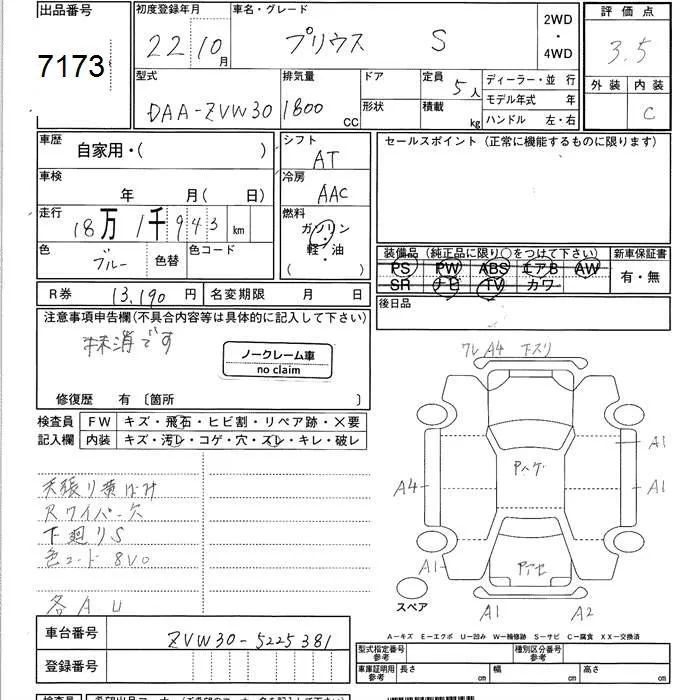 出品番号
7173
初度登録年月
22 10月
車名・グレード
プリウス S
2WD
・
4WD
評価点
3.5
外装 内装
C
型式
DAA-ZVW30
排気量
1800 CC
ドア
形状
定員
5人
積載
kg
ディーラー・並 行
モデル年式 年
ハンドル 左・右
車歴
自家用・( )
車検
年 月( 日)
走行
18万1千943 km
色
ブルー
色替
色コード
シフト
AT
冷房
AAC
燃料
ガソリン
・
軽・油
( )
セールスポイント (正常に機能するものに限ります)
装備品 (純正品に限り○をつけて下さい)
PS PW ABS エアB AW
SR ナビ TV カワ
新車保証書
有・無
後日品
R券 13,190 円
名変期限 月 日
注意事項申告欄(不具合内容等は具体的に記入して下さい)
抹消です
ノークレーム車
no claim
修復歴 有 〔箇所 〕
検査員
記入欄
FW キズ・飛石・ヒビ割・リペア跡・×要
内装 キズ・汚レ・コゲ・穴・スレ・キレ・破レ
天張り黄ばみ
Rワイパー欠
下廻りS
色コード 8V0
各A U
ワレ A4 下スリ
A1
A1
A4
A1
A1
A2
Pヘゲ
スペア
A-キズ E-エクボ U-凹み W-補修跡 S-サビ C-腐食 XX-交換済
車台番号
ZVW30-5225381
登録番号
型式指定番号
参考
種別区分番号
参考
車庫証明用
参考
長さ cm
幅 cm
高さ cm